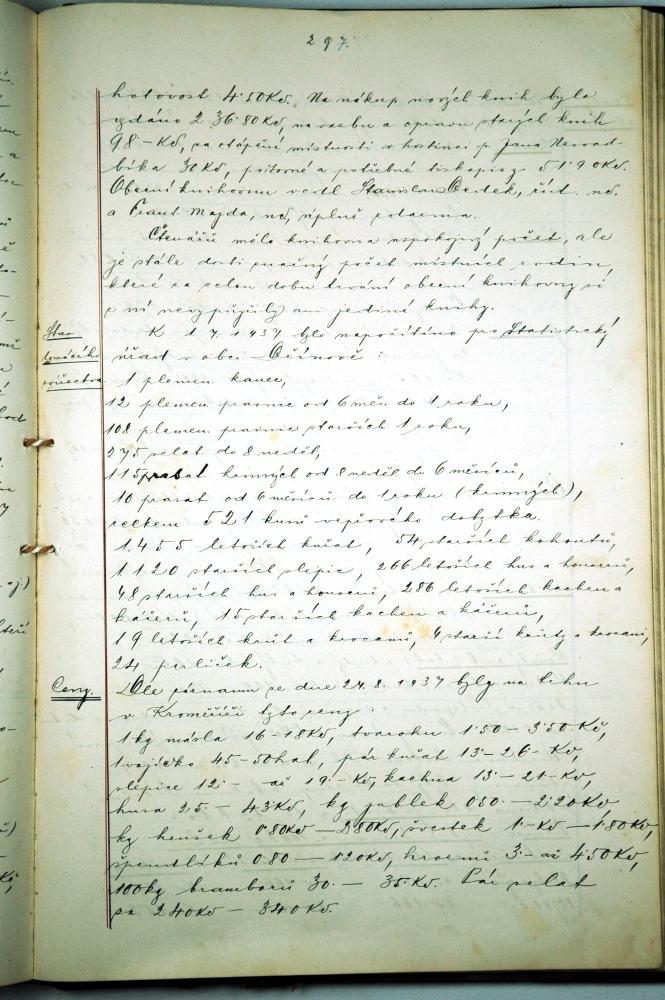 297.
hotovost 4·50Kč. Na nákup nových knih bylo
vydáno 236·80Kč, na vazbu a opravu starých knih
98·–Kč, za otápění místnosti v hostinci p. Jana
bíka 30Kč, poštovné a potřebné tiskopisy 51·90Kč.
Obecní knihovnu vedl Stanislav, říd. uč.
a Frant. Majda, uč, úplně zdarma.
Čtenářů měla knihovna uspokojivý počet, ale
je stále dosti značný počet místních rodin,
které za celou dobu trvání obecní knihovny si
z ní nevypůjčily ani jediné knihy.
Stav
domácího
zvířectva
K 1.7.1937 bylo napočítáno pro Statistický
úřad v obci:
1 plemen. kanec,
12 plemen. prasnic od 6 měs. do 1 roku,
108 plemen. prasnic starších 1 roku,
275 selat do 8 neděl,
115 prasat krmných od 8 neděl do 6 měsíců,
10 prasat od 6 měsíců do 1 roku (krmných),
celkem 521 kusů vepřového dobytka.
1.455 letošních kuřat, 54 starších kohoutů,
1120 starších slepic, 266 letošních hus a houserů,
48 starších hus a houserů, 286 letošních kachen a
káčerů, 15 starších kachen a káčerů,
19 letošních krůt a krocanů, 4 starší krůty a krocani,
24 perliček.
Ceny.
Dle záznamu ze dne 24.8.1937 byly na trhu
v Kroměříži tyto ceny:
1kg másla 16–18Kč, tvarohu 1·50–3·50Kč,
1 vajíčko 45–50hal, pár kuřat 13·–26·–Kč,
slepice 12·– až 19·–Kč, kachna 13·–21·–Kč,
husa 25·–43Kč, kg jablek 0·80·–2·20Kč
kg hrušek 0·80Kč–2·80Kč, švestek 1·–Kč–1·80Kč,
špendlíků 0·80–1·20Kč, hroznů 3·– až 4·50Kč,
100kg bramborů 30·–35·Kč. Pár selat
za 240Kč–340Kč.